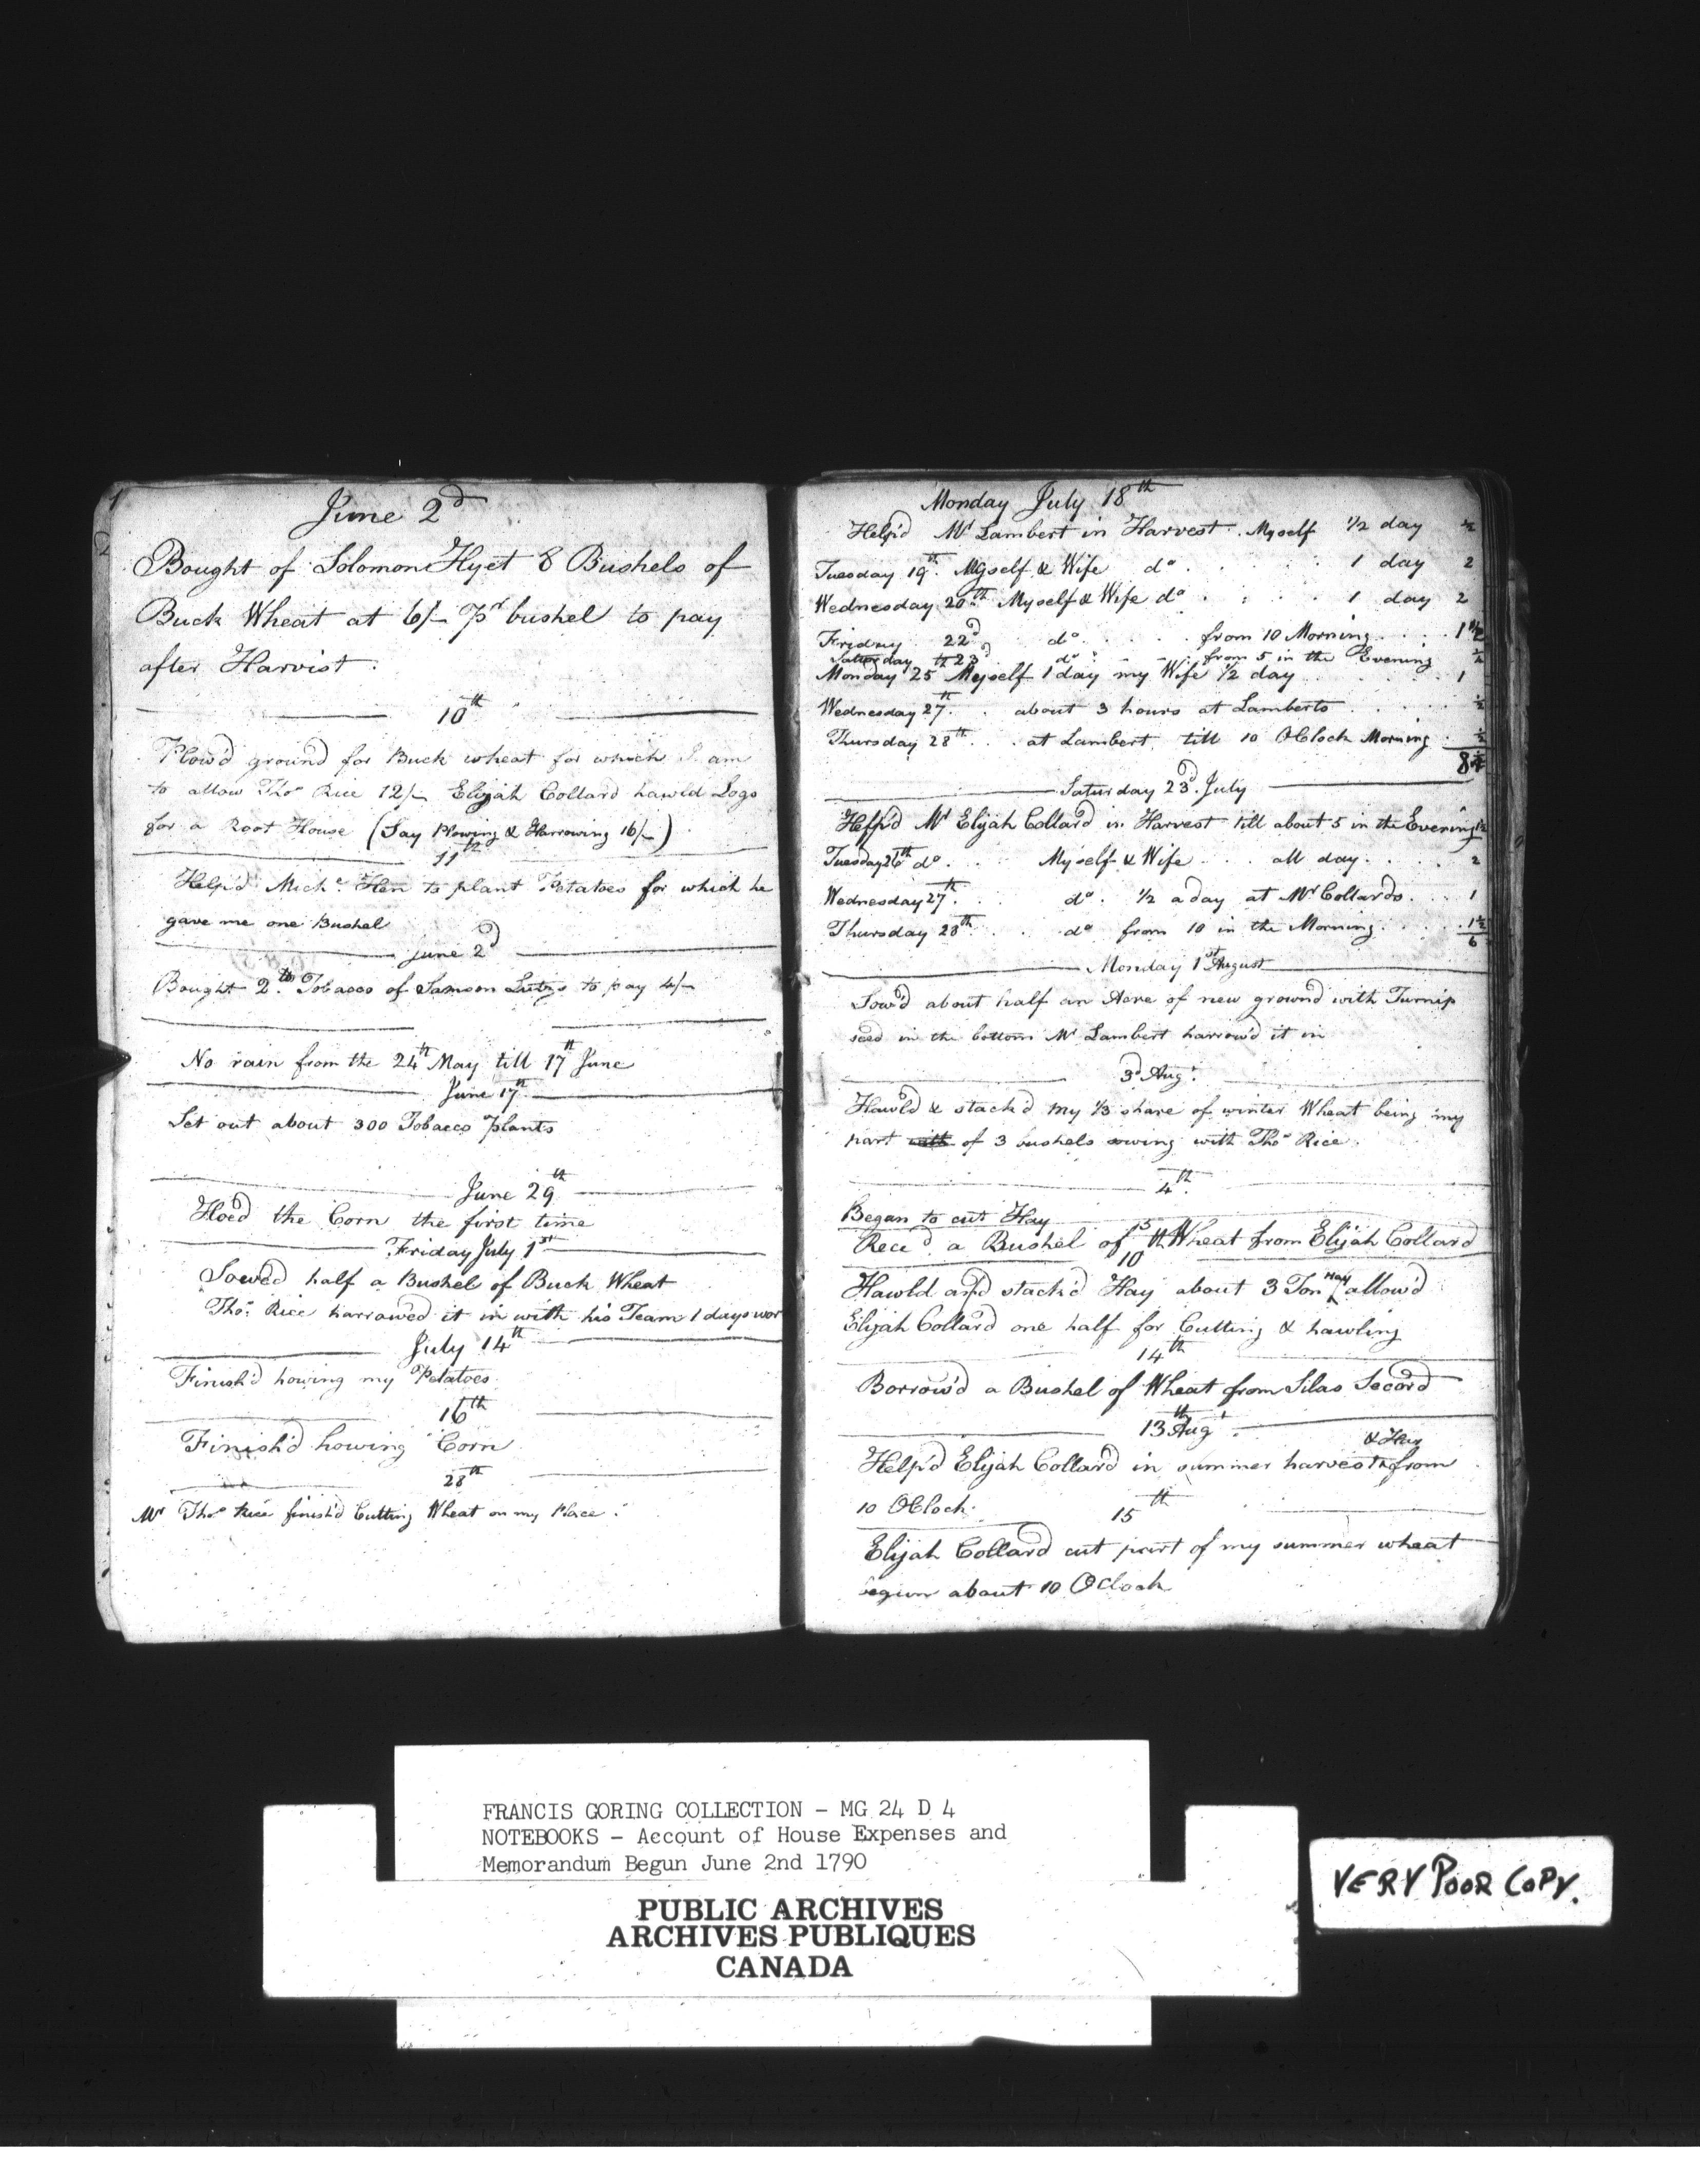 June 2d
Bought of Solomon Hyet 8 Bushels of
Buck Wheat at 6/- pr bushel to pay
after Harvist.
10th
Plow'd ground for Buck wheat for which I am
to allow Thos Rice 12/- Elijah Collard hawld Logs
for a Root House (Say Plowing & Harrowing 16/-)
11th
Help'd Michl Hen to plant Potatoes for which he
gave me one Bushel
June 2d
Bought 2 lb Tobacco of Samson to pay 4/-
No rain from the 24th May till 17th June
June 17th
Set out about 300 Tobacco Plants
June 29th
Hoed the Corn the first time
Friday July 1st
Sowed half a Bushel of Buck Wheat
Thos Rice harrowed it in with his Team 1 days wor
July 14th
Finish'd howing my Potatoes
16th
Finish'd howing Corn
28th
Mr Thos Rice finish'd Cutting Wheat on my Place.
Monday July 18th
Help'd Mr Lambert in Harvest. Myself 1/2 day 1/2
Tuesday 19th. Myself & Wife do . . . . 1 day 2
Wednesday 20th Myself & Wife do . . . . 1 day 2
Friday 22d do . . . . from 10 Morning . . . . 1 1/2
Saturday 23d do . . . from 5 in the Evening
Monday 25 Myself 1 day my Wife 1/2 day . . . . 1
Wednesday 27th . . about 3 hours at Lamberts . . . . 1/2
Thursday 28th . . . at Lambert till 10 OClock Morning . 1/2
8
Saturday 23d July
Help'd Mr Elijah Collard in Harvest till about 5 in the Evening 1 1/2
Tuesday 26th do . . . Myself & Wife . . . all day . . . . 2
Wednesday 27th . . . do . 1/2 a day at Mr Collards . . . 1
Thursday 28th . . . do from 10 in the Morning . . . . 1 1/2
6
Monday 1st August
Sow'd about half an Acre of new ground with Turnip
seed in the bottom Mr Lambert harrow'd it in
3d Augt
Hawld & stack'd my 1/3 share of winter Wheat being my
part with of 3 bushels sowing with Thos Rice.
4th
Began to cut Hay
13th
Rece'd a Bushel of Wheat from Elijah Collard
10
Hawld and stack'd Hay about 3 Ton Hay allow'd
Elijah Collard one half for Cutting & hawling
14th
Borrow'd a Bushel of Wheat from Silas Secord
13th Augt
& Hay
Help'd Elijah Collard in summer harvest from
10 OClock
15th
Elijah Collard cut part of my summer wheat
begun about 10 OClock
FRANCIS GORING COLLECTION - MG 24 D 4
NOTEBOOKS - Account of House Expenses and
Memorandum Begun June 2nd 1790
PUBLIC ARCHIVES
ARCHIVES PUBLIQUES
CANADA
VERY POOR COPY.